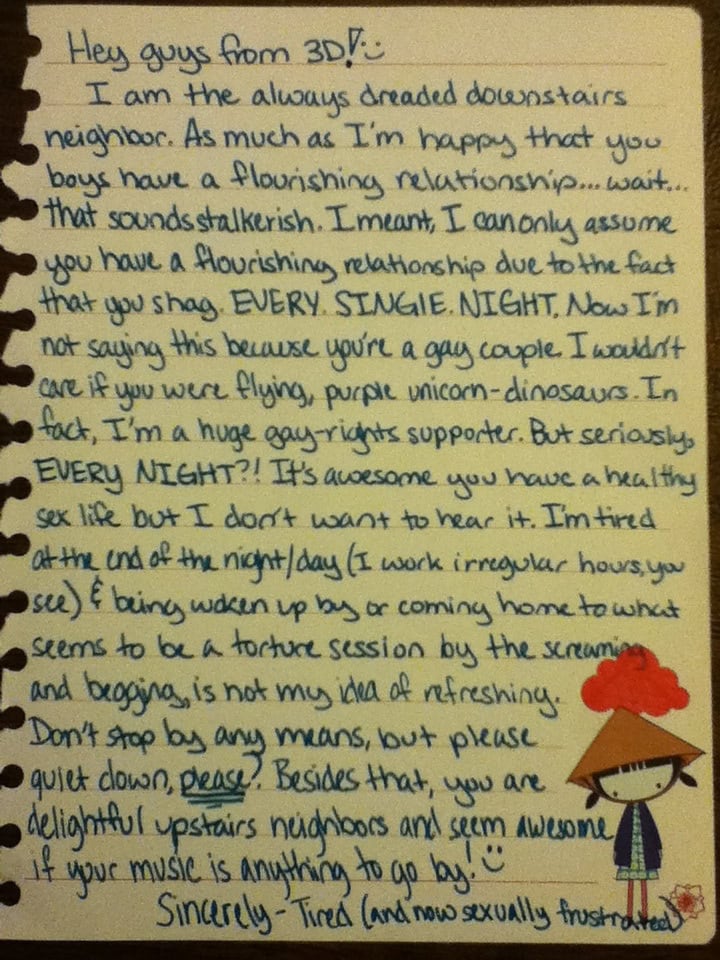 Hey guys from 3D! :)
I am the always dreaded downstairs
neighbor. As much as I'm happy that you
boys have a flourishing relationship... wait...
that sounds stalkerish. I meant, I can only assume
you have a flourishing relationship due to the fact
that you shag. EVERY. SINGLE. NIGHT. Now I'm
not saying this because you're a gay couple. I wouldn't
care if you were flying, purple unicorn-dinosaurs. In
fact, I'm a huge gay-rights supporter. But seriously,
EVERY NIGHT?! It's awesome you have a healthy
sex life but I don't want to hear it. I'm tired
at the end of the night/day (I work irregular hours, you
see) & being woken up by or coming home to what
seems to be a torture session by the screaming
and begging, is not my idea of refreshing.
Don't stop by any means, but please
quiet down, please? Besides that, you are
delightful upstairs neighbors and seem awesome
if your music is anything to go by! :)
Sincerely - Tired (and now sexually frustrated)